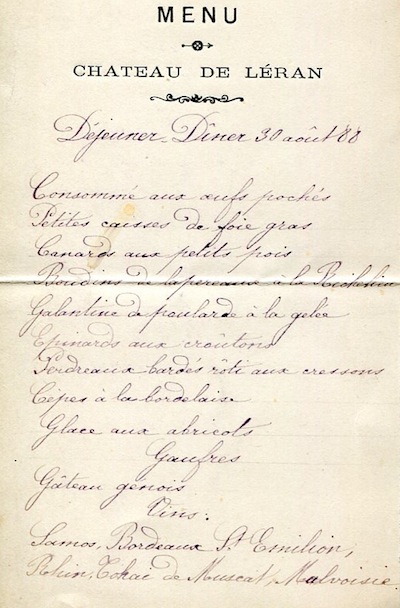 MENU
CHATEAU DE LÉRAN
Déjeuner-Dîner 30 août 88
Consommé aux œufs pochés
Petites caisses de foie gras
Canards aux petits pois
Boudins de lapereaux à la Richelieu
Galantine de poularde à la gelée
Epinards aux croûtons
Perdreaux bardés rôti aux cressons
Cèpes à la bordelaise
Glace aux abricots
Gaufres
Gâteau génois
Vins:
Samos, Bordeaux St Emilion,
Rhin, Tokai de Muscat, Malvoisie